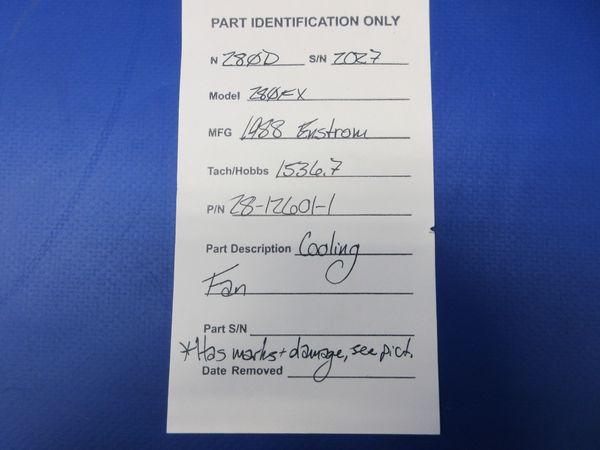 PART IDENTIFICATION ONLY
N 280D S/N 2027
Model 280FX
MFG 1988 Enstrom
Tach/Hobbs 1536.7
P/N 28-12601-1
Part Description Cooling
Fan
Part S/N
*Has marks + damage, see pict.
Date Removed